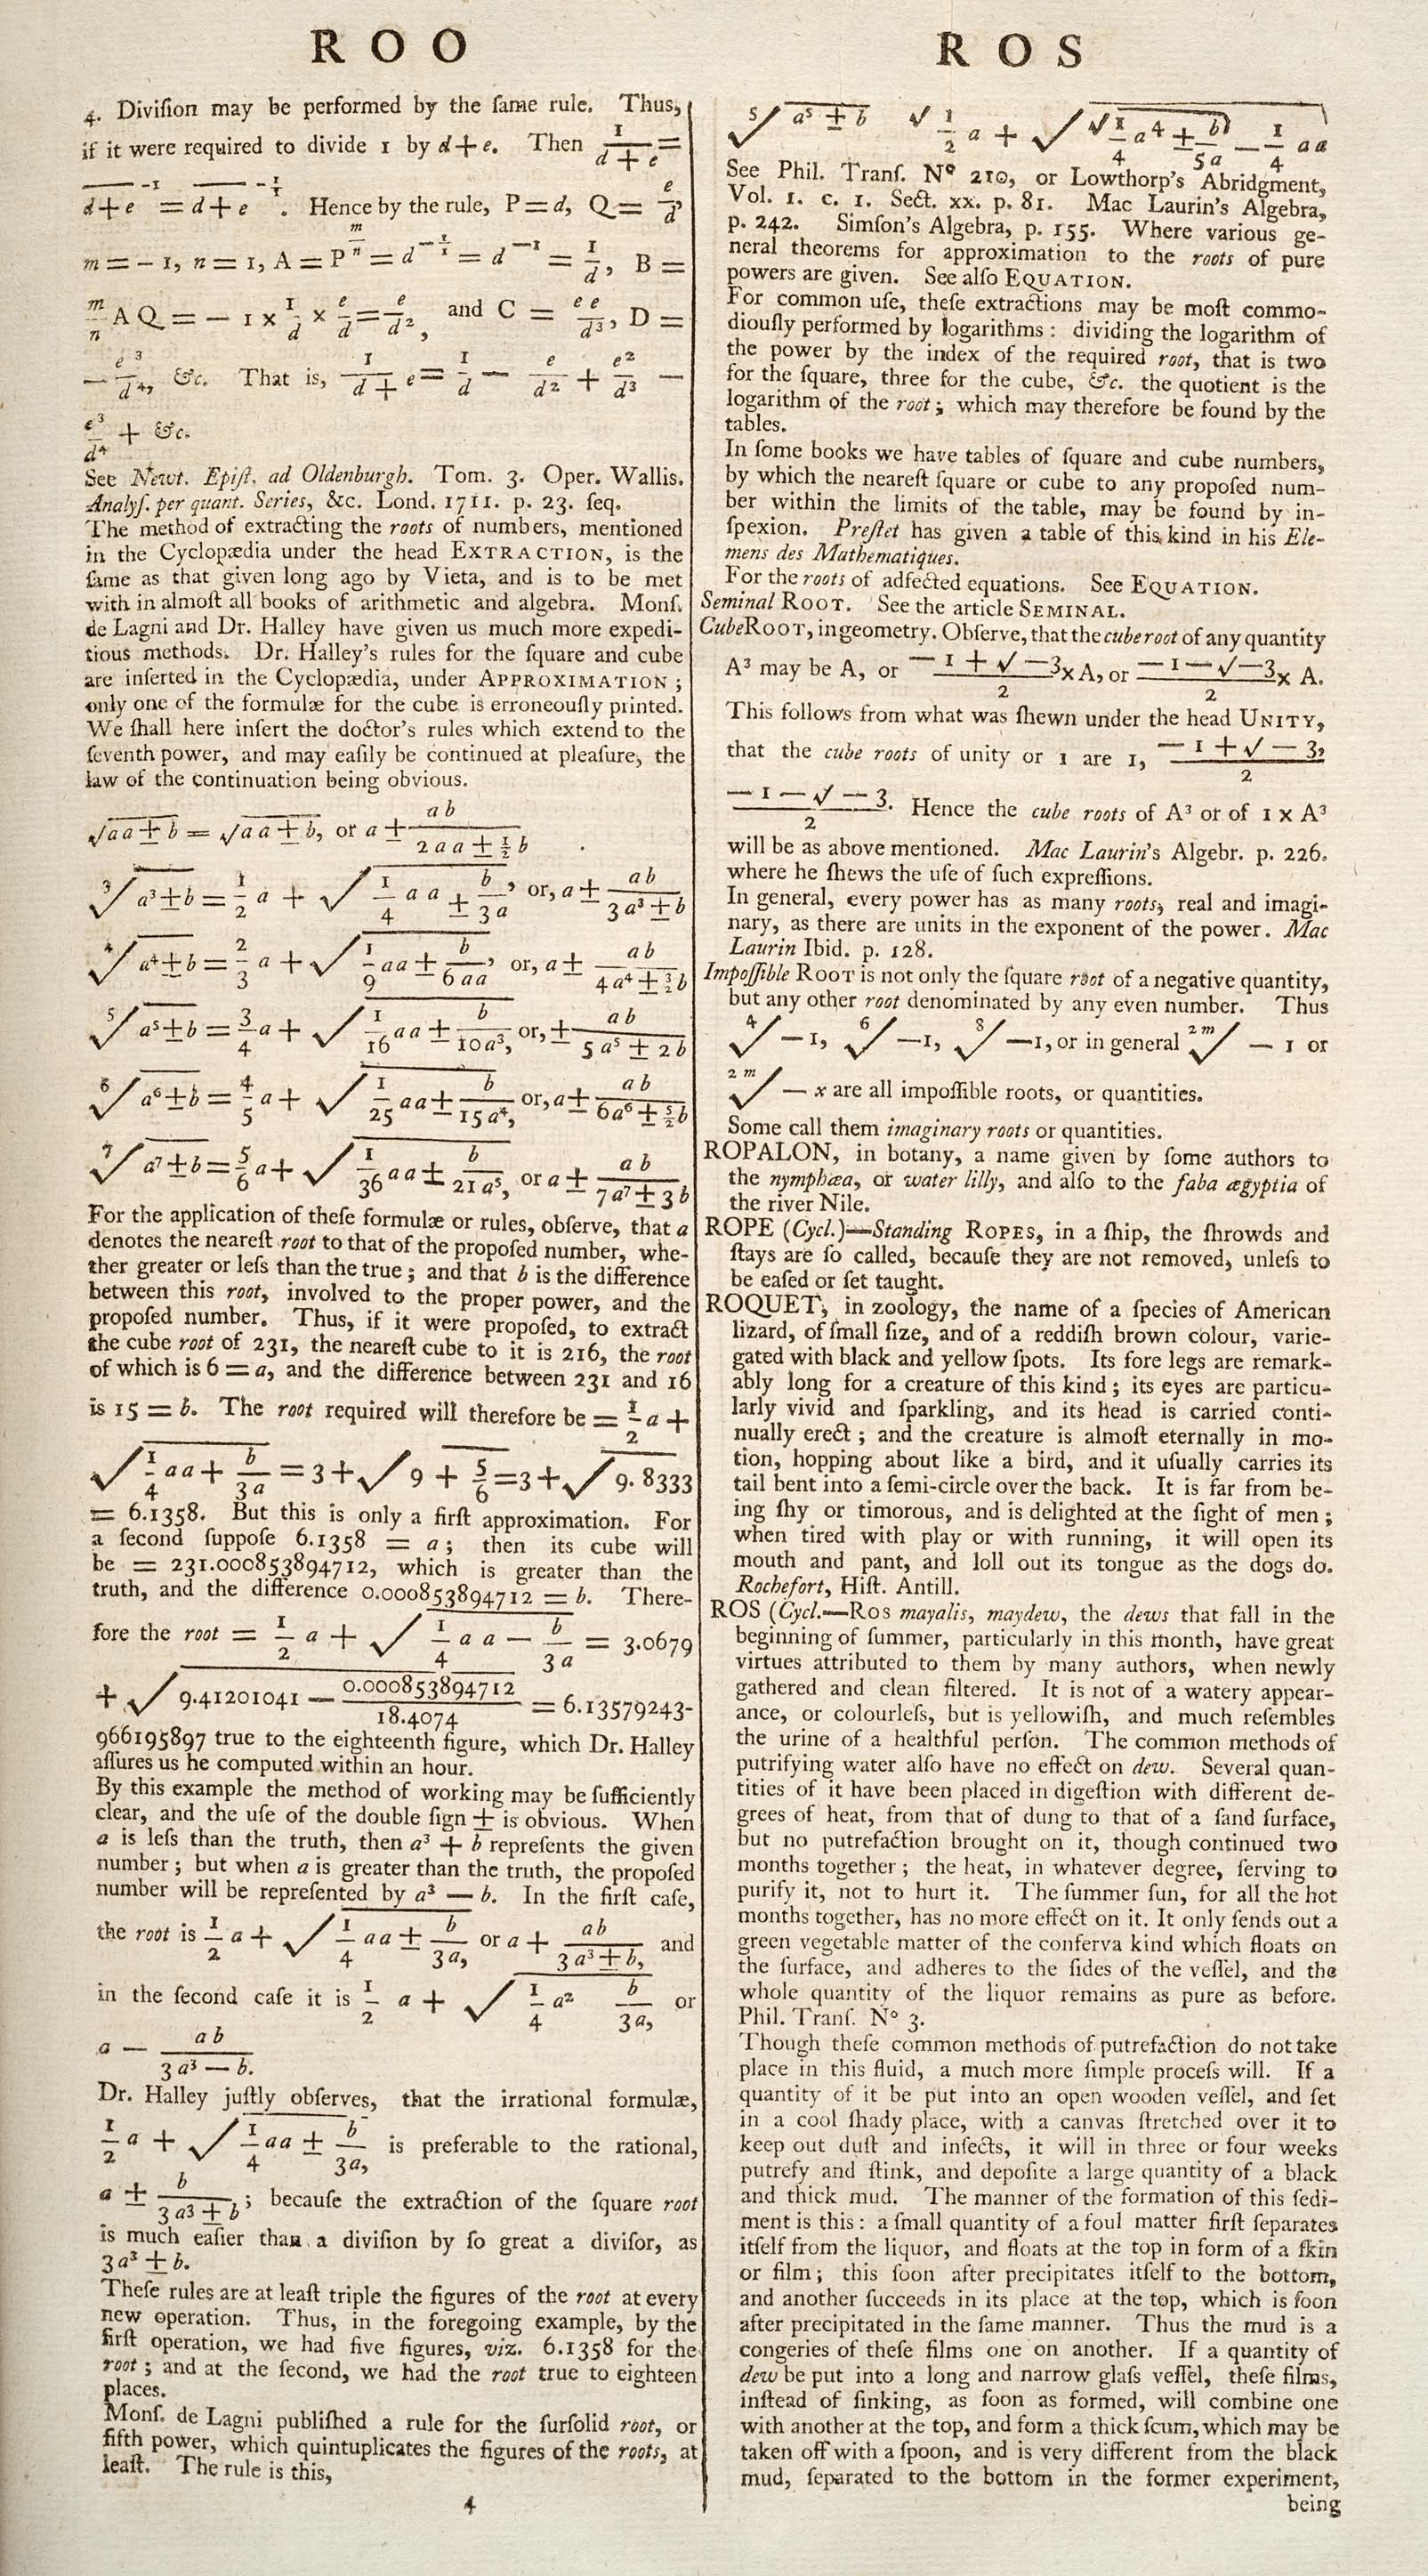 ROO
4. Diviſion may be performed by the ſame rule. Thus,
if it were required to divide 1 by d+e. Then 1/(d+e) =
d+e^-1 = d+e^-1/1. Hence by the rule, P=d, Q= e/d,
m=-1, n=1, A=P^m/n = d^-1/1 = d^-1 = 1/d, B=
m/n AQ=-1 × 1/d × e/d = e/d², and C = ee/d³, D=
- e³/d⁴, &c. That is, 1/d+e = 1/d - e/d² + e²/d³ -
e³/d⁴ + &c.
See Newt. Epiſt. ad Oldenburgh. Tom. 3. Oper. Wallis.
Analyſ. per quant. Series, &c. Lond. 1711. p. 23. ſeq.
The method of extracting the roots of numbers, mentioned
in the Cyclopædia under the head EXTRACTION, is the
ſame as that given long ago by Vieta, and is to be met
with in almoſt all books of arithmetic and algebra. Monſ.
de Lagni and Dr. Halley have given us much more expedi-
tious methods. Dr. Halley's rules for the ſquare and cube
are inſerted in the Cyclopædia, under APPROXIMATION;
only one of the formulæ for the cube is erroneouſly printed.
We ſhall here inſert the doctor's rules which extend to the
ſeventh power, and may eaſily be continued at pleaſure, the
law of the continuation being obvious.
√aa±b = √aa±b, or a ± ab/(2aa±½b)
³√a³±b = 1/2 a + √1/4 aa ± b/3a, or, a ± ab/(3a³±b)
⁴√a⁴±b = 2/3 a + √1/9 aa ± b/6aa, or, a ± ab/(4a⁴±3/2b)
⁵√a⁵±b = 3/4 a + √1/16 aa ± b/10a³, or, ± ab/(5a⁵±2b)
⁶√a⁶±b = 4/5 a + √1/25 aa ± b/15a⁴, or, a ± ab/(6a⁶±5/2b)
⁷√a⁷±b = 5/6 a + √1/36 aa ± b/21a⁵, or a ± ab/(7a⁷±3b)
For the application of theſe formulæ or rules, obſerve, that a
denotes the neareſt root to that of the propoſed number, whe-
ther greater or leſs than the true; and that b is the difference
between this root, involved to the proper power, and the
propoſed number. Thus, if it were propoſed, to extract
the cube root of 231, the neareſt cube to it is 216, the root
of which is 6=a, and the difference between 231 and 16
is 15=b. The root required will therefore be = 1/2 a +
√1/4 aa + b/3a = 3+√9 + 5/6 = 3+√9.8333
= 6.1358. But this is only a firſt approximation. For
a ſecond ſuppoſe 6.1358 = a; then its cube will
be = 231.000853894712, which is greater than the
truth, and the difference 0.000853894712 = b. There-
fore the root = 1/2 a + √1/4 aa - b/3a = 3.0679
+ √9.41201041 - 0.000853894712/18.4074 = 6.13579243-
966195897 true to the eighteenth figure, which Dr. Halley
aſſures us he computed within an hour.
By this example the method of working may be ſufficiently
clear, and the uſe of the double ſign ± is obvious. When
a is leſs than the truth, then a³ + b repreſents the given
number; but when a is greater than the truth, the propoſed
number will be repreſented by a³ — b. In the firſt caſe,
the root is 1/2 a + √1/4 aa ± b/3a, or a + ab/(3a³±b), and
in the ſecond caſe it is 1/2 a + √1/4 a² b/3a, or
a — ab/(3a³ — b).
Dr. Halley juſtly obſerves, that the irrational formulæ,
1/2 a + √1/4 aa ± b/3a, is preferable to the rational,
a ± b/(3a³±b); becauſe the extraction of the ſquare root
is much eaſier than a diviſion by ſo great a diviſor, as
3a³±b.
Theſe rules are at leaſt triple the figures of the root at every
new operation. Thus, in the foregoing example, by the
firſt operation, we had five figures, viz. 6.1358 for the
root; and at the ſecond, we had the root true to eighteen
places.
Monſ. de Lagni publiſhed a rule for the ſurſolid root, or
fifth power, which quintuplicates the figures of the roots, at
leaſt. The rule is this,
4
ROS
⁵√a⁵±b √1/2 a + √√1/4 a⁴ ± b/5a — 1/4 aa
See Phil. Tranſ. Nº 210, or Lowthorp's Abridgment,
Vol. 1. c. 1. Sect. xx. p. 81. Mac Laurin's Algebra,
p. 242. Simſon's Algebra, p. 155. Where various ge-
neral theorems for approximation to the roots of pure
powers are given. See alſo EQUATION.
For common uſe, theſe extractions may be moſt commo-
diouſly performed by logarithms: dividing the logarithm of
the power by the index of the required root, that is two
for the ſquare, three for the cube, &c. the quotient is the
logarithm of the root; which may therefore be found by the
tables.
In ſome books we have tables of ſquare and cube numbers,
by which the neareſt ſquare or cube to any propoſed num-
ber within the limits of the table, may be found by in-
ſpexion. Preſtet has given a table of this kind in his Ele-
mens des Mathematiques.
For the roots of adfected equations. See EQUATION.
Seminal ROOT. See the article SEMINAL.
Cube ROOT, in geometry. Obſerve, that the cube root of any quantity
A³ may be A, or (—1+√—3)/2 × A, or (—1—√—3)/2 × A.
This follows from what was ſhewn under the head UNITY,
that the cube roots of unity or 1 are 1, (—1+√—3)/2,
(—1—√—3)/2. Hence the cube roots of A³ or of 1×A³
will be as above mentioned. Mac Laurin's Algebr. p. 226.
where he ſhews the uſe of ſuch expreſſions.
In general, every power has as many roots, real and imagi-
nary, as there are units in the exponent of the power. Mac
Laurin Ibid. p. 128.
Impoſſible ROOT is not only the ſquare root of a negative quantity,
but any other root denominated by any even number. Thus
⁴√—1, ⁶√—1, ⁸√—1, or in general ²ᵐ√—1 or
²ᵐ√—x are all impoſſible roots, or quantities.
Some call them imaginary roots or quantities.
ROPALON, in botany, a name given by ſome authors to
the nymphæa, or water lilly, and alſo to the faba ægyptia of
the river Nile.
ROPE (Cycl.)—Standing ROPES, in a ſhip, the ſhrowds and
ſtays are ſo called, becauſe they are not removed, unleſs to
be eaſed or ſet taught.
ROQUET, in zoology, the name of a ſpecies of American
lizard, of ſmall ſize, and of a reddiſh brown colour, varie-
gated with black and yellow ſpots. Its fore legs are remark-
ably long for a creature of this kind; its eyes are particu-
larly vivid and ſparkling, and its head is carried conti-
nually erect; and the creature is almoſt eternally in mo-
tion, hopping about like a bird, and it uſually carries its
tail bent into a ſemi-circle over the back. It is far from be-
ing ſhy or timorous, and is delighted at the ſight of men;
when tired with play or with running, it will open its
mouth and pant, and loll out its tongue as the dogs do.
Rochefort, Hiſt. Antill.
ROS (Cycl.—Ros mayalis, maydew, the dews that fall in the
beginning of ſummer, particularly in this month, have great
virtues attributed to them by many authors, when newly
gathered and clean filtered. It is not of a watery appear-
ance, or colourleſs, but is yellowiſh, and much reſembles
the urine of a healthful perſon. The common methods of
putrifying water alſo have no effect on dew. Several quan-
tities of it have been placed in digeſtion with different de-
grees of heat, from that of dung to that of a ſand ſurface,
but no putrefaction brought on it, though continued two
months together; the heat, in whatever degree, ſerving to
purify it, not to hurt it. The ſummer ſun, for all the hot
months together, has no more effect on it. It only ſends out a
green vegetable matter of the conferva kind which floats on
the ſurface, and adheres to the ſides of the veſſel, and the
whole quantity of the liquor remains as pure as before.
Phil. Tranſ. Nº 3.
Though theſe common methods of putrefaction do not take
place in this fluid, a much more ſimple proceſs will. If a
quantity of it be put into an open wooden veſſel, and ſet
in a cool ſhady place, with a canvas ſtretched over it to
keep out duſt and inſects, it will in three or four weeks
putrefy and ſtink, and depoſite a large quantity of a black
and thick mud. The manner of the formation of this ſedi-
ment is this: a ſmall quantity of a foul matter firſt ſeparates
itſelf from the liquor, and floats at the top in form of a ſkin
or film; this ſoon after precipitates itſelf to the bottom,
and another ſucceeds in its place at the top, which is ſoon
after precipitated in the ſame manner. Thus the mud is a
congeries of theſe films one on another. If a quantity of
dew be put into a long and narrow glaſs veſſel, theſe films,
inſtead of ſinking, as ſoon as formed, will combine one
with another at the top, and form a thick ſcum, which may be
taken off with a ſpoon, and is very different from the black
mud, ſeparated to the bottom in the former experiment,
being